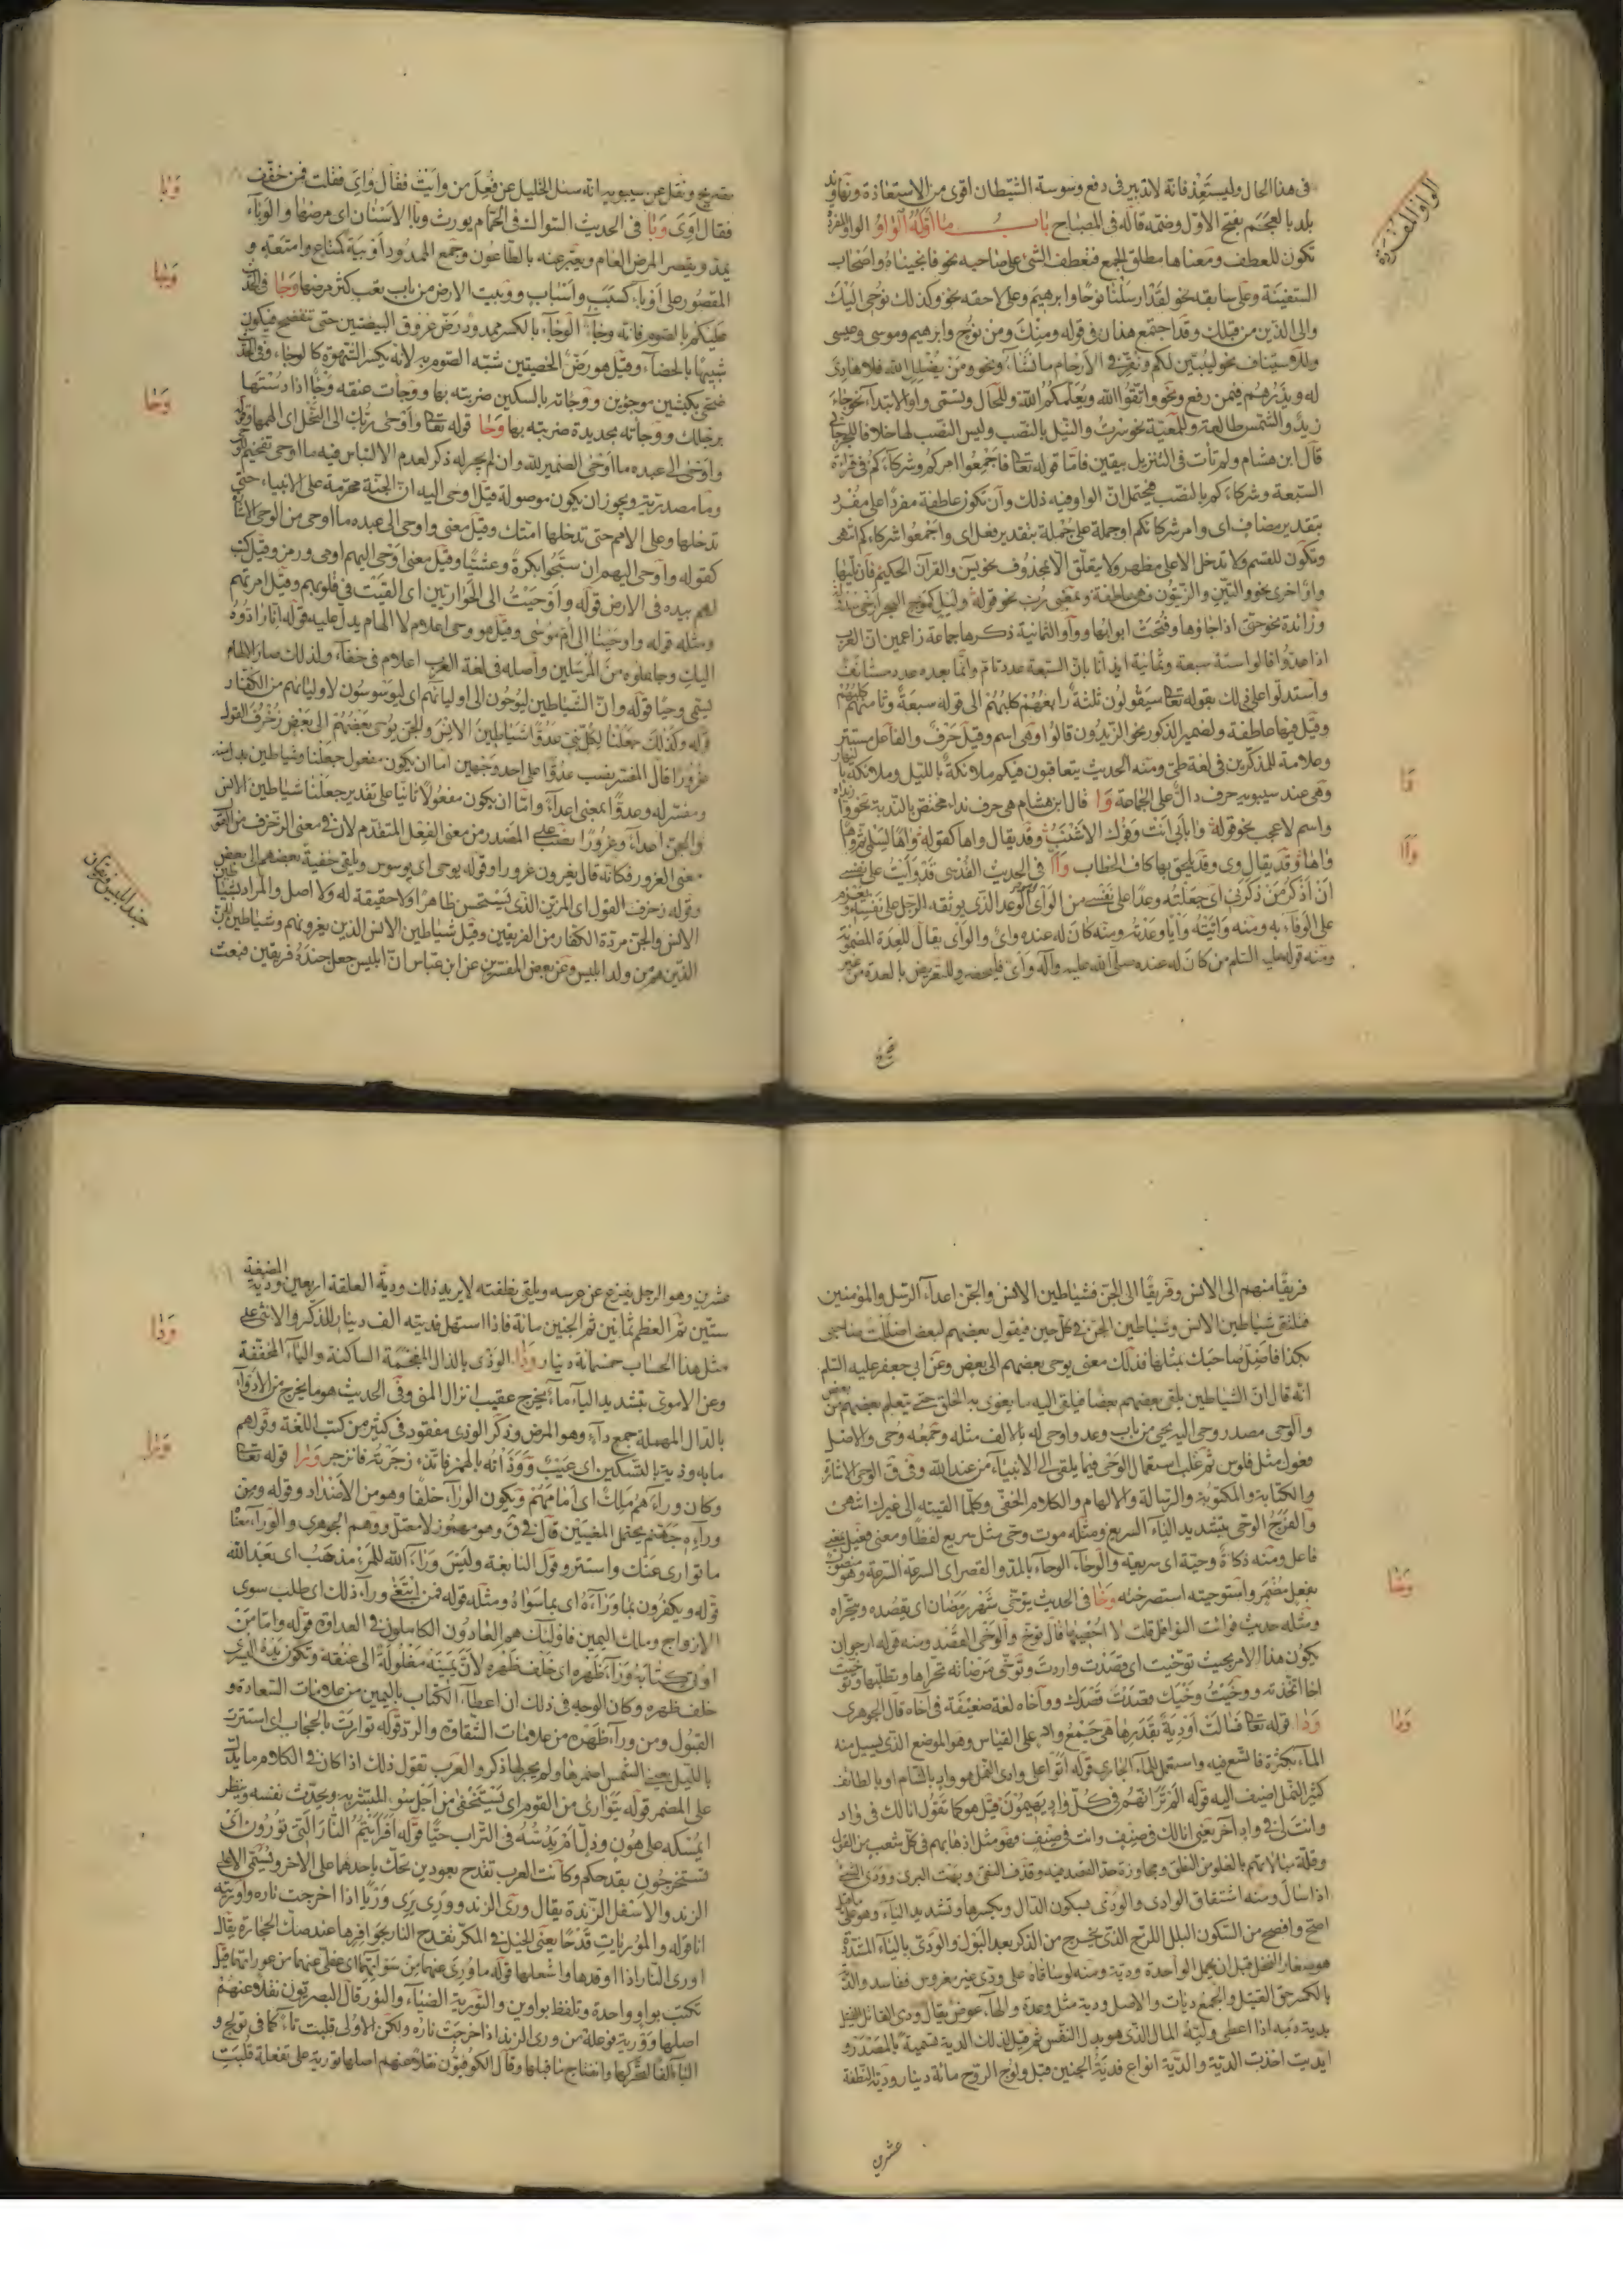 الواو المفردة
في هذا الحال وليستعذ فانه لا تدبير في دفع وسوسة الشيطان اقوى من الاستعاذة ونهاوند
بلد بالعجم بفتح الاول وضمه قاله في المصباح باب ما اوله الواو الواو المفردة
تكون للعطف ومعناها مطلق الجمع فتعطف الشئ على صاحبه نحو فانجيناه واصحاب
السفينة وعلى سابقه نحو لقد ارسلنا نوحا وابراهيم وعلى لاحقه نحو وكذلك نوحى اليك
والى الذين من قبلك وقد اجتمع هذان في قوله ومنك ومن نوح وابراهيم وموسى وعيسى
وللاستيناف نحو لنبين لكم ونقر في الارحام ما نشاء ونحو ومن يضلل الله فلا هادى
له ويذرهم فيمن رفع ونحو واتقوا الله ويعلمكم الله وللحال وتسمى واو الابتداء نحو جاء
زيد والشمس طالعة وللمعية نحو سرت والنيل بالنصب وليس النصب لها خلافا للجرجاني
قال ابن هشام ولم تات في التنزيل بيقين فاما قوله تعالى فاجمعوا امركم وشركاءكم في قراءة
السبعة وشركاءكم بالنصب فيحتمل ان الواو فيه ذلك وان تكون عاطفة مفردا على مفرد
بتقدير مضاف اى وامر شركائكم او جملة على جملة بتقدير فعل اى واجمعوا شركاءكم انتهى
وتكون للقسم ولا تدخل الا على مظهر ولا يتعلق الا بمحذوف نحو يس والقرآن الحكيم فان تليها
واو اخرى نحو والتين والزيتون فهى عاطفة وبمعنى رب نحو قوله وليل كموج البحر ارخى سدوله
وزائدة نحو حتى اذا جاؤها وفتحت ابوابها وواو الثمانية ذكرها جماعة زاعمين ان العرب
اذا عدوا قالوا ستة سبعة وثمانية ايذانا بان السبعة عدد تام وانما بعده عدد مستانف
واستدلوا على ذلك بقوله تعالى سيقولون ثلثة رابعهم كلبهم الى قوله سبعة وثامنهم كلبهم
وقيل فيها عاطفة ولضمير الذكور نحو الزيدون قالوا وهى اسم وقيل حرف والفاعل مستتر
وعلامة للمذكرين في لغة طى ومنه الحديث يتعاقبون فيكم ملائكة بالليل وملائكة بالنهار
وهى عند سيبويه حرف دال على الجماعة وا قال ابن هشام هى حرف نداء مختص بالندبة نحو وا زيداه
واسم لاعجب نحو قوله وابابى انت وفوك الاشنب وقد يقال واها كقوله واها لسلمى ثم واها
واها وقد يقال وى وقد يلحق بها كاف الخطاب وآا في الحديث القدسى قد وايت على نفسى
ان اذكر من ذكرنى اى جعلته وعدا على نفسى من الواى الوعد الذى يوثقه الرجل على نفسه ويعزم
على الوفاء به ومنه وائيته وايا وعدته ومنه كان له عنده واى والواى يقال للعدة المضمونة
ومنه قوله عليه السلم من كان له عند رسول الله صلى الله عليه وآله واى فليحضر وللتعريض بالعدة من غير
وا
وآا
تصريح ونقل عن سيبويه انه سئل الخليل عن فعل من وايت فقال واى فقلت فمن خفف
فقال اوى وبا في الحديث السواك في الحمام يورث وباء الاسنان اى مرضها والوباء
يمد ويقصر المرض العام ويعبر عنه بالطاعون وجمع الممدود اوبية كمتاع وامتعة و
المقصور على اوباء كسبب واسباب ووبيت الارض من باب تعب كثر مرضها وجا في الحديث
عليكم بالصوم فانه وجاء الوجاء بالكسر ممدود رض عروق البيضتين حتى تنفضخ فيكون
شبيها بالخصاء وقيل هو رض الخصيتين شبه الصوم به لانه يكسر الشهوة كالوجاء وفي الحديث
ضحى بكبشين موجوين ووجاته بالسكين ضربته بها ووجات عنقه وجا اذا دستها
برجلك ووجاته بحديدة ضربته بها وحا قوله تعالى واوحى ربك الى النحل اى الهمها وقوله
واوحى الى عبده ما اوحى الضمير لله وان لم يجر له ذكر لعدم الالتباس فيه ما اوحى تفخيم
وما مصدرية ويجوز ان يكون موصولة قيل اوحى اليه ان الجنة محرمة على الانبياء حتى
تدخلها وعلى الامم حتى تدخلها امتك وقيل معنى واوحى الى عبده ما اوحى من الوحى
كقوله واوحى اليهم ان سبحوا بكرة وعشيا وقيل معنى اوحى اليهم اومى ورمز وقيل كتب
لهم بيده في الارض قوله واذ اوحيت الى الحواريين اى القيت في قلوبهم وقيل امرتهم
ومثله قوله واوحينا الى ام موسى وقيل هو وحى اعلام لا الهام يدل عليه قوله انا رادوه
اليك وجاعلوه من المرسلين واصله في لغة العرب اعلام في خفاء ولذلك صار الالهام
يسمى وحيا قوله وان الشياطين ليوحون الى اوليائهم اى ليوسوسون لاوليائهم من الكفار
قوله وكذلك جعلنا لكل نبى عدوا شياطين الانس والجن يوحى بعضهم الى بعض زخرف القول
غرورا قال المفسر نصب عدوا على احد وجهين اما ان يكون مفعول جعلنا وشياطين بدل منه
ومفسر له وعدوا بمعنى اعداء واما ان يكون مفعولا ثانيا على تقدير جعلنا شياطين الانس
والجن اعداء وغرورا نصب على المصدر من معنى الفعل المتقدم لان في معنى الزخرف من القول
معنى الغرور فكانه قال يغرون غرورا وقوله يوحى اى يوسوس ويلقى خفية بعضهم الى بعض
وقوله زخرف القول اى المزين الذى يستحسن ظاهرا ولا حقيقة له ولا اصل والمراد بشياطين
الانس والجن مردة الكفار من الفريقين وقيل شياطين الانس الذين يغرونهم وشياطين الجن
الذين هم من ولد ابليس وعن بعض المفسرين عن ابن عباس ان ابليس جعل جنده فريقين فبعث
وبا
وجا
وحا
جند ابليس فريقان
فريقا منهم الى الانس وفريقا الى الجن فشياطين الانس والجن اعداء الرسل والمؤمنين
فتلتقى شياطين الانس وشياطين الجن في كل حين فيقول بعضهم لبعض اضللت صاحبى
بكذا فاضل صاحبك بمثلها فذلك معنى يوحى بعضهم الى بعض وعن ابى جعفر عليه السلم
انه قال ان الشياطين يلقى بعضهم بعضا فيلقى اليه ما يغوى به الخلق حتى يتعلم بعضهم من بعض
والوحى مصدر وحى اليه يحى من باب وعد واوحى له بالالف مثله وجمعه وحى والاصل
فعول مثل فلوس ثم غلب استعمال الوحى فيما يلقى الى الانبياء من عند الله وفي ق الوحى الاشارة
والكتابة والمكتوبة والرسالة والالهام والكلام الخفى وكلما القيته الى غيرك انتهى
السريع ومثله موت وحى مثل سريع لفظا ومعنى فعيل بمعنى
فاعل ومنه ذكاة وحية اى سريعة والوحاء الوحاء بالمد والقصر اى السرعة السرعة وهو منصوب
بفعل مضمر واستوحيته استصرخته وخا في الحديث يتوخى شهر رمضان اى يقصده ويتحراه
ومثله حديث فوائت النوافل قلت لا احصيها قال توخ والوخى القصد ومنه قوله ارجو ان
يكون هذا الامر بحيث توخيت اى قصدت واردت وتوخى مرضاته تحراها وتطلبها وتوخيت
اخا اتخذته ووخيت وخيك قصدت قصدك وواخاه لغة ضعيفة في آخاه قال الجوهرى
ودا قوله تعالى فسالت اودية بقدرها هى جمع واد على القياس وهو الموضع الذى يسيل منه
الماء بكثرة فاتسع فيه واستعمل للماء الجارى قوله اتوا على وادى النمل هو واد بالشام او بالطائف
كثير النمل اضيف اليه قوله الم تر انهم في كل واد يهيمون قيل هو كما تقول انا لك في واد
وانت لى في واد آخر يعنى انا لك في صنف وانت في صنف فهو مثل اذهابهم في كل شعب من القول
وقلة مبالاتهم بالغلو من النطق ومجاوزة حد القصد فيه وقذف التقى وبهت البرى وودى الشئ
اذا سال ومنه اشتقاق الوادى والودى بسكون الدال وبكسرها وتشديد الياء وهو على ما قيل
اصح وافصح من السكون البلل اللزج الذى يخرج من الذكر بعد البول والودى بالياء المشددة
هو صغار النخل قبل ان يحمل الواحدة ودية ومنه لو ساقاه على ودى غير مغروس ففاسد والدية
بالكسر حق القتيل والجمع ديات والاصل ودية مثل وعدة والهاء عوض يقال ودى القاتل القتيل
يديه دية اذا اعطى وليه المال الذى هو بدل النفس ثم قيل لذلك المال الدية تسمية بالمصدر و
ايديت اخذت الدية والدية انواع فدية الجنين قبل ولوج الروح مائة دينار ودية النطفة
وخا
ودا
عشرين
عشرين وهو الرجل يفزع عن عرسه ويلقى نطفته لا يريد ذلك ودية العلقة اربعين ودية المضغة
ستين ثم العظم ثمانين ثم الجنين مائة فاذا استهل فديته الف دينار للذكر والانثى على
مثل هذا الحساب خمسمائة دينار وذا الوذى بالذال المعجمة الساكنة والياء المخففة
وعن الاموى بتشديد الياء ماء يخرج عقيب انزال المنى وفي الحديث هو ما يخرج من الادواء
بالدال المهملة جمع داء وهو المرض وذكر الوذى مفقود في كثير من كتب اللغة وقولهم
ما به وذية بالتسكين اى عيب ووذاته بالهمز فاتذء زجرته فانزجر ورا قوله تعالى
وكان وراءهم ملك اى امامهم ويكون الوراء خلفا وهو من الاضداد وقوله ومن
ورائه جهنم يحتمل المعنيين قال في ق وهو مهموز لا معتل ووهم الجوهرى والوراء معناه
ما توارى عنك واستتر وقول النابغة وليس وراء الله للمرء مذهب اى بعد الله
قوله ويكفرون بما وراءه اى بما سواه ومثله قوله فمن ابتغى وراء ذلك اى طلب سوى
الازواج وملك اليمين فاولئك هم العادون الكاملون في العداوة قوله واما من
اوتى كتابه وراء ظهره اى خلف ظهره لان يمينه مغلولة الى عنقه وتكون يده اليسرى
خلف ظهره وكان الوجه في ذلك ان اعطاء الكتاب باليمين من علامات السعادة و
القبول ومن وراء ظهره من علامات الشقاوة والرد قوله توارت بالحجاب اى استترت
بالليل يعنى الشمس اضمرها ولم يجر لها ذكر والعرب تقول ذلك اذا كان في الكلام ما يدل
على المضمر قوله يتوارى من القوم اى يستخفى من اجل سوء المبشر به ويحدث نفسه وينظر
ايمسكه على هون وذل ام يدسه في التراب حيا قوله افرايتم النار التى تورون اى
تستخرجون بقدحكم وكانت العرب تقدح بعودين تحك باحدهما على الاخر وتسمى الاعلى
الزند والاسفل الزندة يقال ورى الزند وورى يرى وريا اذا اخرجت ناره واوريته
انا قوله والموريات قدحا يعنى الخيل في المكر تقدح النار بحوافرها عند صك الحجارة يقال
اورى النار اذا اوقدها واشعلها قوله ما وورى عنهما من سوآتهما اى غطى عنهما من عوراتهما قيل
تكتب بواو واحدة وتلفظ بواوين والتورية الضياء والنور قال البصريون نقلا عنهم
اصلها وورية فوعلة من ورى الزند اذا خرجت ناره ولكن الاولى قلبت تاء كما في تولج و
الياء الفا لتحركها وانفتاح ما قبلها وقال الكوفيون نقلا عنهم اصلها تورية على تفعلة قلبت
وذا
ورا